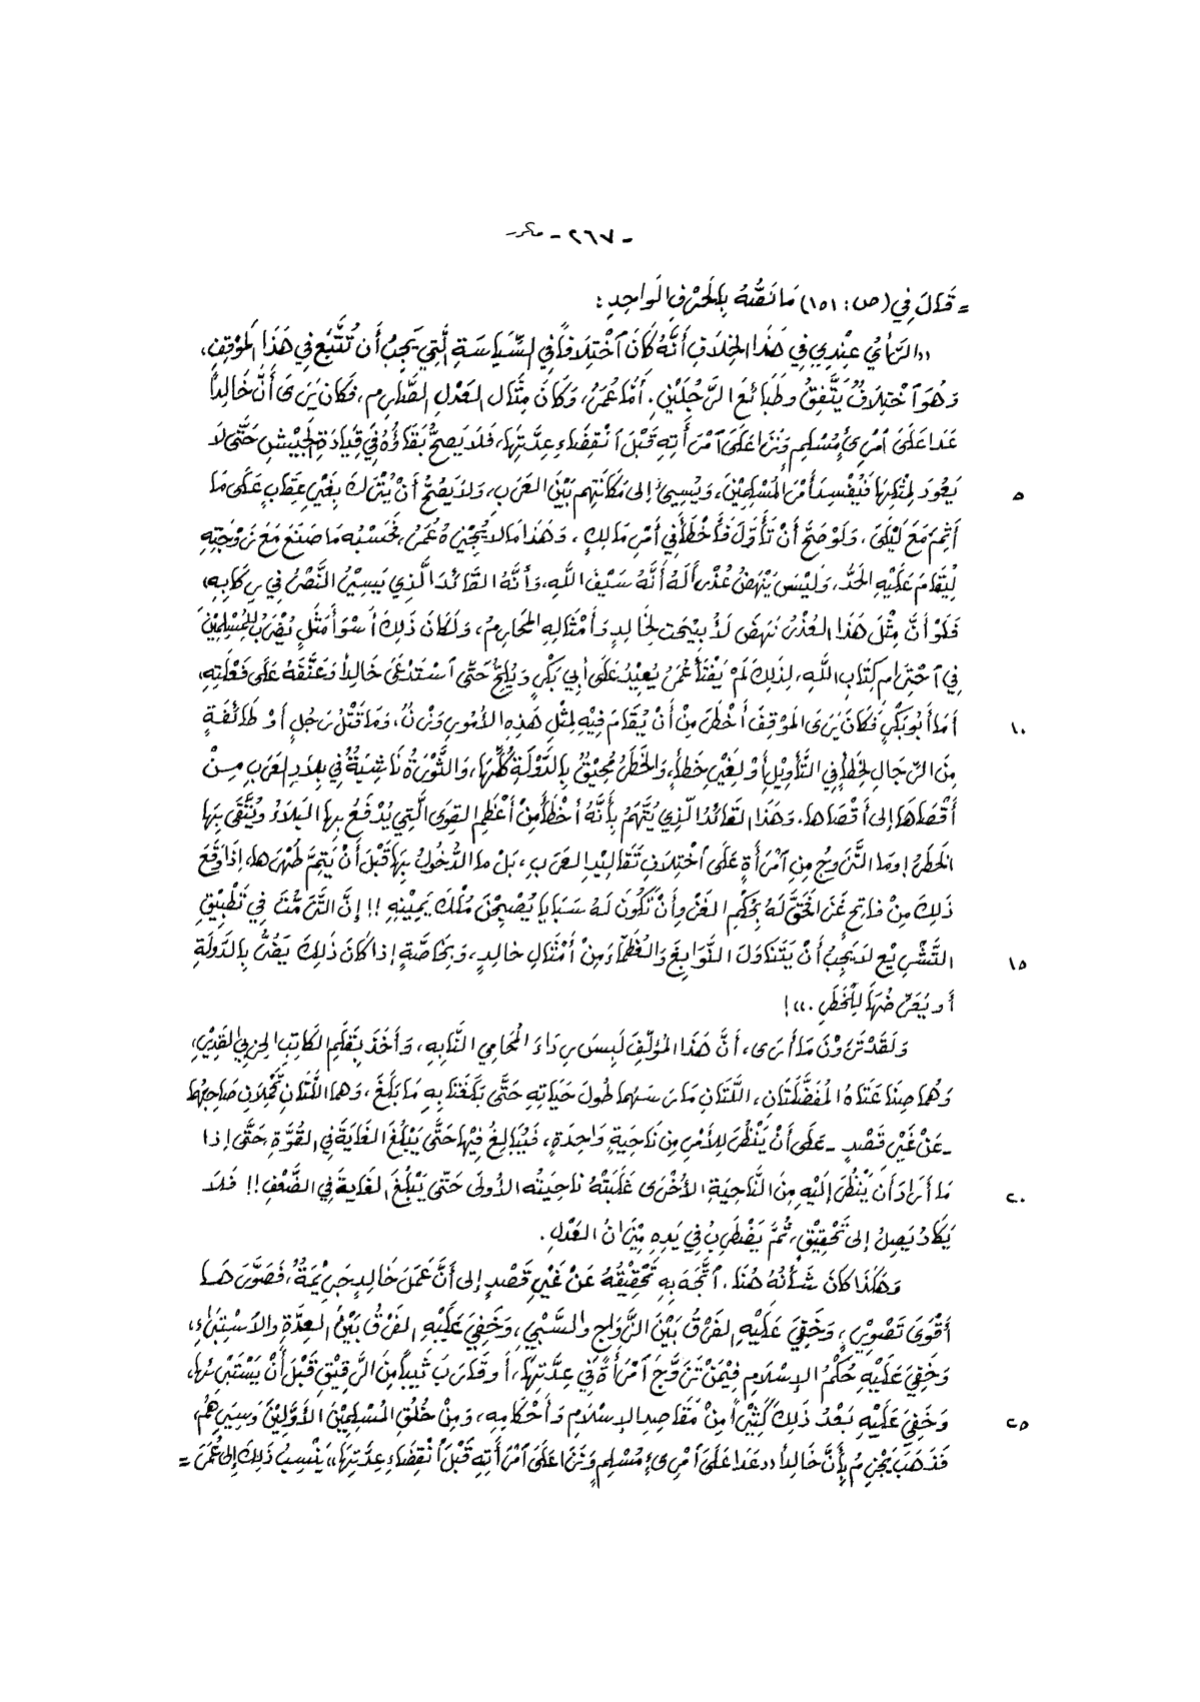 - ٢٦٧ - مكرر
= قَالَ فِي (ص: ١٥١) مَا نَصُّهُ بِالْحَرْفِ الْوَاحِدِ:
«الرَّأْيُ عِنْدِي فِي هَذَا الْخِلَافِ أَنَّهُ كَانَ اخْتِلَافاً فِي السِّيَاسَةِ الَّتِي يَجِبُ أَن تُتَّبَعَ فِي هَذَا الْمَوْقِفِ،
وَهُوَ اخْتِلَافٌ يَتَّفِقُ وطَبَائعَ الرَّجُلَيْنِ. أَمَّا عُمَرُ، وَكَانَ مِثَالَ العَدْلِ الصَّارِمِ، فَكَانَ يَرَى أَنَّ خَالِداً
عَدَا عَلَى امْرِئٍ مُسْلِمٍ وَنَزَا عَلَى امْرَأَتِهِ قَبْلَ انْقِضَاءِ عِدَّتِهَا، فَلَا يَصِحُّ بَقَاؤُهُ فِي قِيَادَةِ الْجَيْشِ حَتَّى لَا
٥ يَعُودَ لِمِثْلِهَا فَيُفْسِدَ أَمْرَ الْمُسْلِمِيْنَ، وَيُسِيْءَ إلى مَكَانَتِهِم بَيْنَ العَرَبِ، وَلَا يَصِحُّ أَنْ يُتْرَكَ بِغَيْرِ عِقَابٍ عَلَى مَا
أَثِمَ مَعَ لَيْلَى، وَلَوْ صَحَّ أَنْ تَأَوَّلَ فَأَخْطَأَ فِي أَمْرِ مَالِكٍ، وَهَذَا مَا لَا يُجِيْزُهُ عُمَرُ، فَحَسْبُه مَا صَنَعَ مَعَ زَوْجَتِهِ
لِيُقَامَ عَلَيْهِ الحَدُّ، وَلَيْسَ يَنْهَضُ عُذْراً لَهُ أَنَّهُ سَيْفُ اللهِ، وَأَنَّهُ القَائدُ الَّذِي يَسِيْرُ النَّصْرُ فِي رِكَابِهِ،
فَلَوْ أَنَّ مِثْلَ هَذَا العُذْرِ نَهَضَ لَأُبِيْحَتْ لِخَالِدٍ وَأَمْثَالِهِ المَحَارِمُ، وَلَكَانَ ذَلِكَ أَسْوَأَ مَثَلٍ يُضْرَبُ لِلْمُسْلِمِيْنَ
فِي احْتِرَامِ كِتَابِ اللهِ، لِذَلِكَ لَمْ يَفْتَأْ عُمَرُ يُعِيْدُ عَلَى أَبِي بَكْرٍ وَيُلِحُّ حَتَّى اسْتَدْعَى خَالِداً وَعَنَّفَهُ عَلَى فَعْلَتِهِ،
١٠ أَمَا أَبُو بَكْرٍ فَكَانَ يَرَى المَوْقِفَ أَخْطَرَ مِنْ أَنْ يُقَامَ فِيْهِ لِمِثْلِ هَذِهِ الأُمُورِ وَزْنٌ، وَمَا قَتْلُ رَجُلٍ أَوْ طَائفَةٍ
مِنَ الرِّجَالِ لِخَطَأٍ فِي التَّأْوِيْلِ أَو لِغَيْرِ خَطَأٍ، وَالخَطَرُ مُحِيْقٌ بِالدَّوْلَةِ كُلِّهَا، وَالثَّوْرَةُ نَاشِبَةٌ فِي بِلَادِ العَرَبِ مِنْ
أَقْصَاهَا إلى أَقْصَاهَا. وَهَذَا القَائدُ الَّذِي يُتَّهَمُ بِأَنَّهُ أَخْطَأَ مِنْ أَعْظَمِ القِوَى الَّتِي يُدْفَعُ بِهَا البَلَاءُ وَيُتَّقَى بِهَا
الخَطَرُ! وَمَا التَّزَوُّجُ مِنِ امْرَأَةٍ عَلَى اخْتِلَافِ تَقَالِيْدِ العَرَبِ، بَلْ مَا الدُّخُولُ بِهَا قَبْلَ أَنْ يَتِمَّ طُهْرُهَا، إِذَا وَقَعَ
ذَلِكَ مِنْ فَاتِحٍ غَزَا فَحَقَّ لَهُ بِحُكْمِ الغَزْوِ أَنْ تَكُونَ لَهُ سَبَايَا يُصْبِحْنَ مُلْكَ يَمِيْنِهِ!! إِنَّ التَّزَمُّتَ فِي تَطْبِيْقِ
١٥ التَّشْرِيْعِ لَا يَجِبُ أَنْ يَتَنَاوَلَ النَّوَابِغَ وَالعُظَمَاءَ مِنْ أَمْثَالِ خَالِدٍ، وَبِخَاصَّةٍ إِذَا كَانَ ذَلِكَ يَضُرُّ بِالدَّوْلَةِ
أَو يُعَرِّضُهَا لِلْخَطَرِ.»!
وَلَقَدْ تَرَوْنَ مَا أَرَى، أَنَّ هَذَا المُؤَلِّفَ لَبِسَ رِدَاءَ المُحَامِي النَّابِهِ، وَأَخَذَ بِقَلَمِ الكَاتِبِ الحِزْبِيِّ القَدِيْرِ،
وَهُمَا صِنَاعَتَاهُ المُفَضَّلَتَانِ، اللَّتَانِ مَارَسَهُما طُولَ حَيَاتِهِ حَتَّى بَلَغَتَا بِهِ مَا بَلَغَ، وَهما اللَّتَانِ تَحْمِلَانِ صَاحِبَهُمَا
- عَنْ غَيْرِ قَصْدٍ - عَلَى أَنْ يَنْظُرَ لِلأَمْرِ مِن نَاحِيَةٍ وَاحِدَةٍ، فَيُبَالِغُ فِيْهَا حَتَّى يَبْلُغَ الغَايَةَ فِي القُوَّةِ، حَتَّى إِذَا
٢٠ مَا أَرَادَ أَن يَنْظُرَ إِلَيْهِ مِنَ النَّاحِيَةِ الأُخْرَى غَلَبَتْهُ نَاحِيَتُه الأُولَى حَتَّى يَبْلُغَ الغَايَةَ فِي الضَّعْفِ!! فَلَا
يَكَادُ يَصِلُ إِلى تَحْقِيْقٍ، ثُمَّ يَضْطَرِبُ فِي يَدِهِ مِيْزَانُ العَدْلِ.
وَهَكَذَا كَانَ شَأْنُهُ هُنَا. اتَّجَهَ بِهِ تَحْقِيْقُهُ عَنْ غَيْرِ قَصْدٍ إِلى أَنَّ عَمَلَ خَالِدٍ جَرِيْمَةٌ، فَصَوَّرَهَا
أَقْوَى تَصْوِيْرٍ، وَخَفِيَ عَلَيْهِ الفَرْقُ بَيْنَ الزَّوَاجِ وَالسَّبْيِ، وَخَفِيَ عَلَيْهِ الفَرْقُ بَيْنَ العِدَّةِ وَالاسْتِبْرَاءِ،
وَخَفِيَ عَلَيْهِ حُكْمُ الإِسْلَامِ فِيْمَنْ تَزَوَّجَ امْرَأَةً فِي عِدَّتِهَا، أَو قَارَبَ ثَيِّباً مِنَ الرَّقِيْقِ قَبْلَ أَنْ يَسْتَبْرِئَهَا،
٢٥ وَخَفِيَ عَلَيْهِ بَعْدَ ذَلِكَ كَثِيْراً مِنْ مَقَاصِدِ الإِسْلَامِ وَأَحْكَامِهِ، وَمِنْ خُلُقِ المُسْلِمِيْنَ الأَوَّلِيْنَ وَسِيَرِهِمْ،
فَذَهَبَ يَجْزِمُ بِأَنَّ خَالِداً «عَدَا عَلَى امْرِئٍ مُسْلِمٍ وَنَزَا عَلَى امْرَأَتِهِ قَبْلَ انْقِضَاءِ عِدَّتِهَا» يَنْسِبُ ذَلِكَ إِلى عُمَرَ =